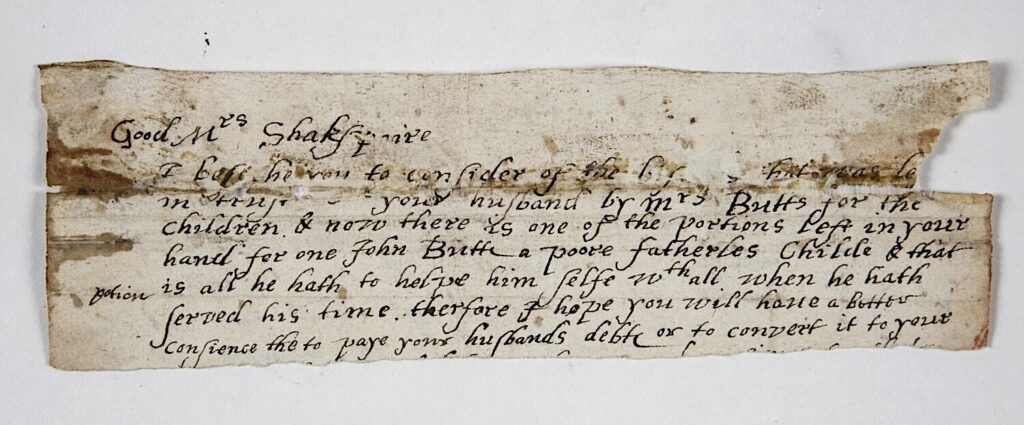 Good Mrs Shakspaire
I bese he you to consider of the that was le
in trus your husband by Mrs Butts for the
Children & now there is one of the portions left in your
hand for one John Butte a poore fatherles Childe & that
is all he hath to helpe him selfe wth all when he hath
potion
served his time. therfore I hope you will have a better
Consience the to paye your husbands debte or to convert it to your